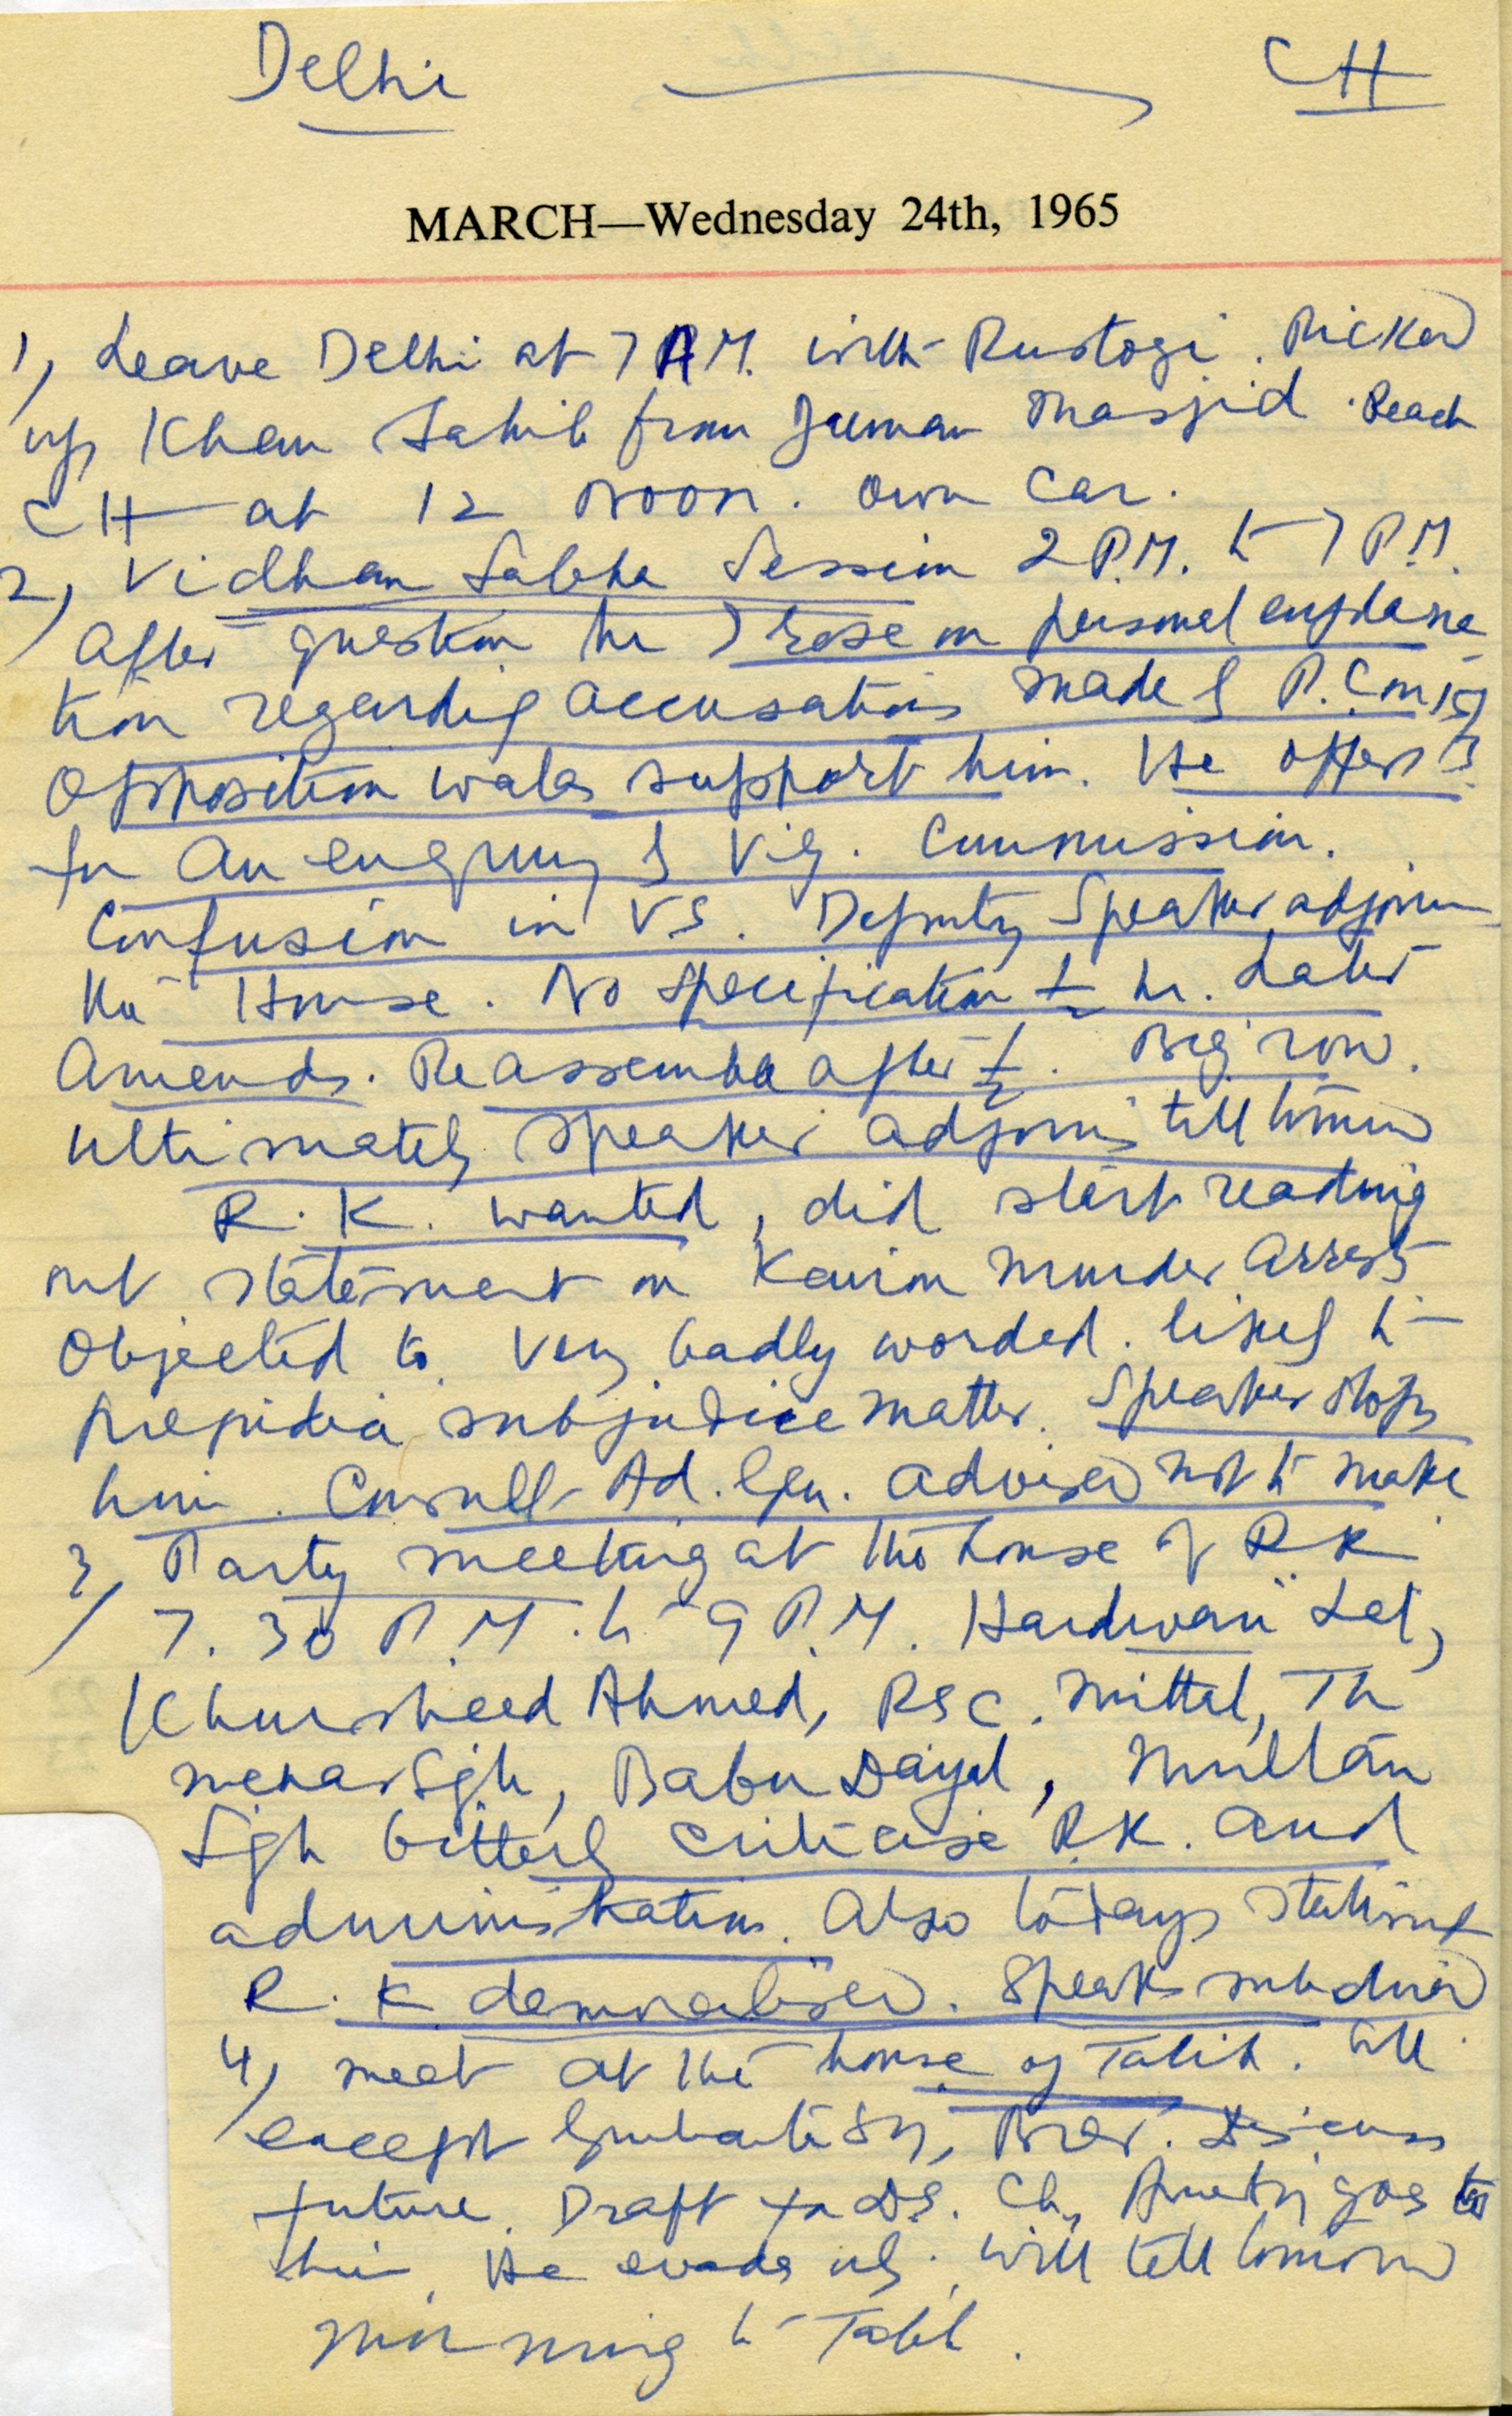 Delhi CH
MARCH—Wednesday 24th, 1965
1) Leave Delhi at 7 AM. with Rustogi. Picked
up Khan Sahib from Juman Masjid. Reach
CH at 12 Noon. Own Car.
2) Vidhan Sabha Session 2 P.M. to 7 P.M.
After question hr I rose on personel explana
tion regarding accusations made by P. C on 15/3
Opposition walas support him. He offers
for an enquiry by Vig. Commission.
Confusion in VS. Deputy Speaker adjourn
the House. No specification ½ hr. Later
Amends. Reassemble after ½. Big row.
Ultimately Speaker adjourns till tomorrow
R. K. wanted, did start reading
out statement on Kairon Murder Arrests
Objected to. Very badly worded. likely to
prejudice subjudice matter. Speaker stops
him. Consult Ad. Gen. advised not to make
3) Party meeting at the house of R K.
7.30 P.M. to 9 P.M. Hardwari Lal,
Khursheed Ahmed, RSC. Mittal, Th
Mehar Sgh, Babu Dayal, Multan
Sgh bitterly criticise R.K. and
administration. Also todays statement
R. K demoralised. Speaks subdued
4) meet at the house of Talib. All
except Gurbanta Sn, Brar. Discuss
future. Draft for DS. Ch, goes to
him. He evades us. Will tell tomorrow
morning to Talib.